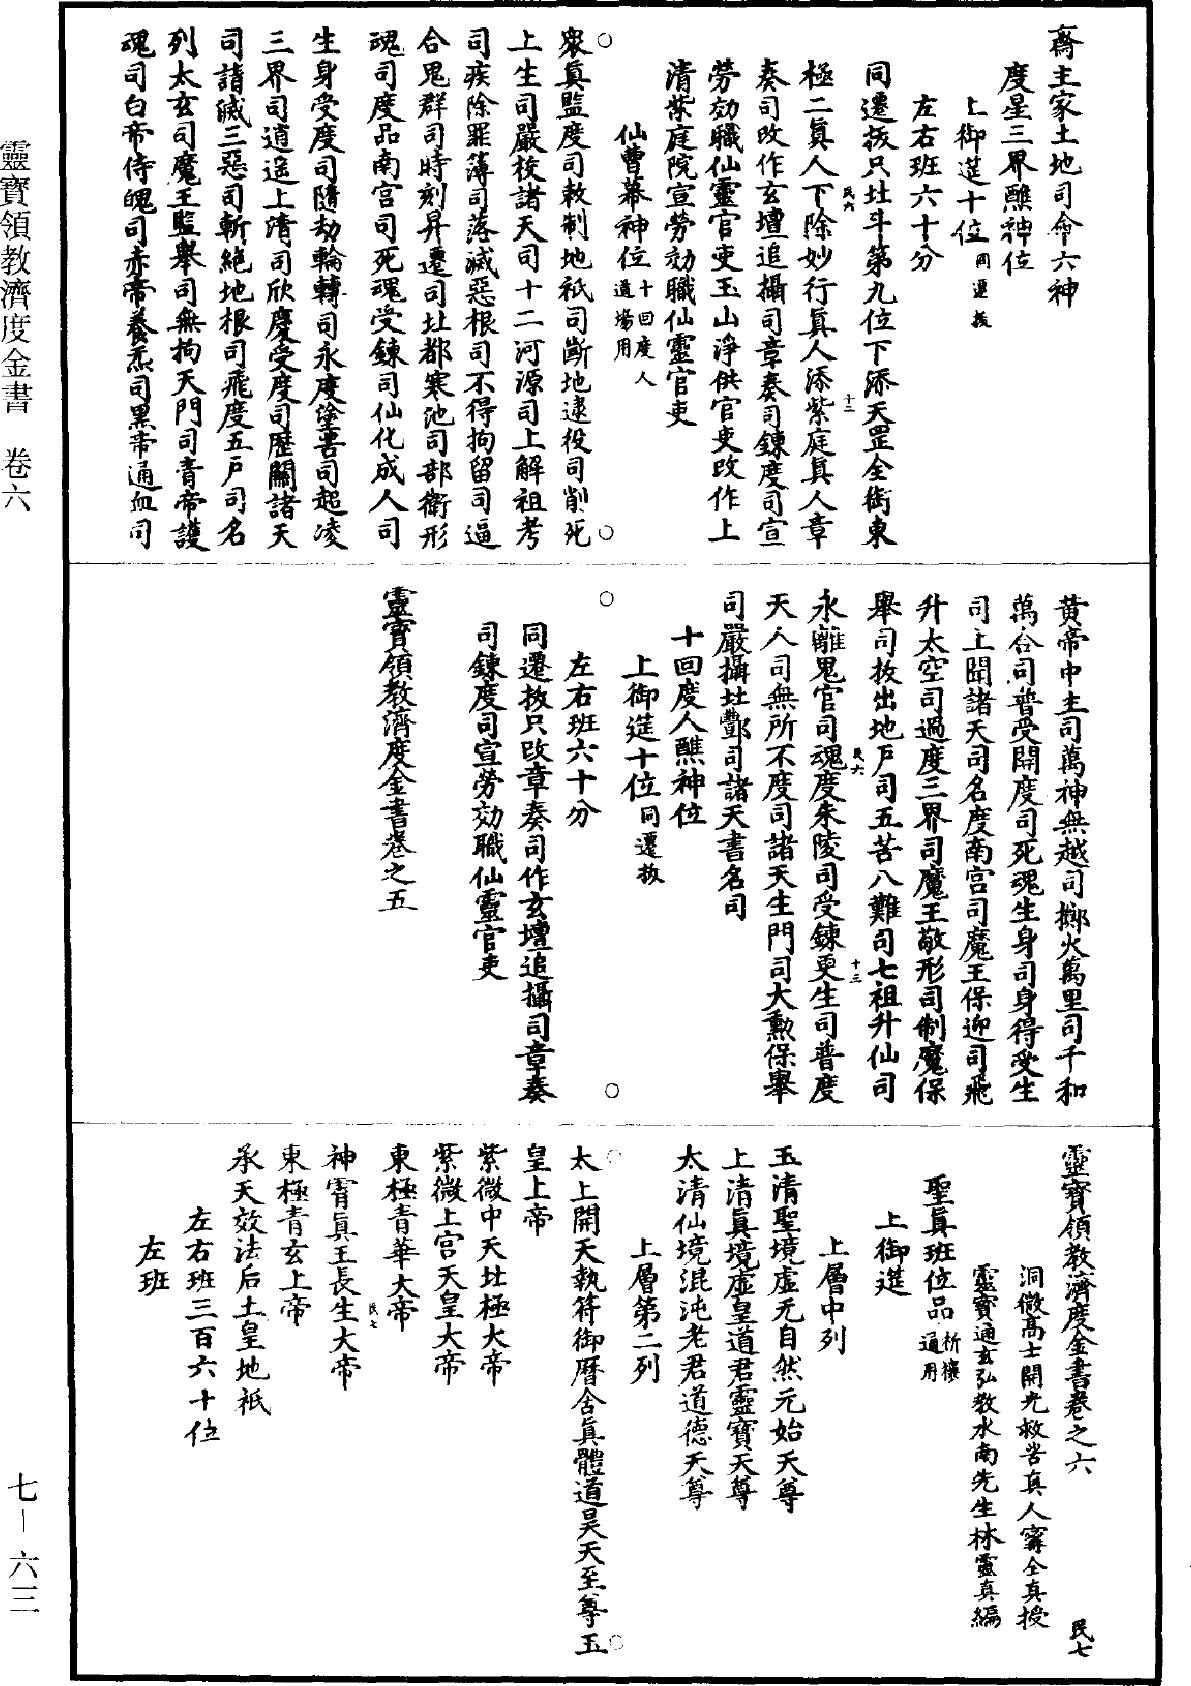 齋主家土地司命六神
度星三界醮神位
上御筵十位同遷拔
左右班六十分
同遷拔只北斗第九位下添天罡全銜東
極二眞人下除妙行眞人添紫庭眞人章
民六
十二
奏司改作玄壇追攝司章奏司鍊度司宣
勞効職仙靈官吏玉山淨供官吏改作上
清紫庭院宣勞効職仙靈官吏
仙曹幕神位十回度人道場用
衆眞監度司敕制地祇司斷地逮役司削死
上生司嚴校諸天司十二河源司上解祖考
司疾除罪簿司落滅惡根司不得拘留司逼
合鬼群司時刻昇遷司北都寒池司部衛形
魂司度品南宮司死魂受鍊司仙化成人司
生身受度司隨劫輪轉司永度塗害司超凌
三界司逍遥上清司欣慶受度司歷關諸天
司請滅三惡司斬絶地根司飛度五戶司名
列太玄司魔王監舉司無拘天門司青帝護
魂司白帝侍魄司赤帝養炁司黑帝通血司
黃帝中主司萬神無越司擲火萬里司千和
萬合司普受開度司死魂生身司身得受生
司上聞諸天司名度南宮司魔王保迎司飛
升太空司過度三界司魔王敬形司制魔保
舉司拔出地戶司五苦八難司七祖升仙司
永離鬼官司魂度朱陵司受鍊更生司普度
民六
十三
天人司無所不度司諸天生門司大勲保舉
司嚴攝北酆司諸天書名司
十回度人醮神位
上御筵十位同遷拔
左右班六十分
同遷拔只改章奏司作玄壇追攝司章奏
司鍊度司宣勞効職仙靈官吏
靈寶領教濟度金書卷之五
靈寶領教濟度金書卷之六
民七
洞微高士開光救苦真人甯全真授
靈寶通玄弘教水南先生林靈真編
聖眞班位品祈禳通用
上御筵
上層中列
玉清聖境虛无自然元始天尊
上清眞境虛皇道君靈寶天尊
太清仙境混沌老君道德天尊
上層第二列
太上開天執符御曆含眞體道昊天至尊玉
皇上帝
紫微中天北極大帝
紫微上宮天皇大帝
東極青華大帝
民七
神霄眞王長生大帝
東極青玄上帝
承天效法后土皇地祇
左右班三百六十位
左班
靈寶領教濟度金書 卷六
七—六三